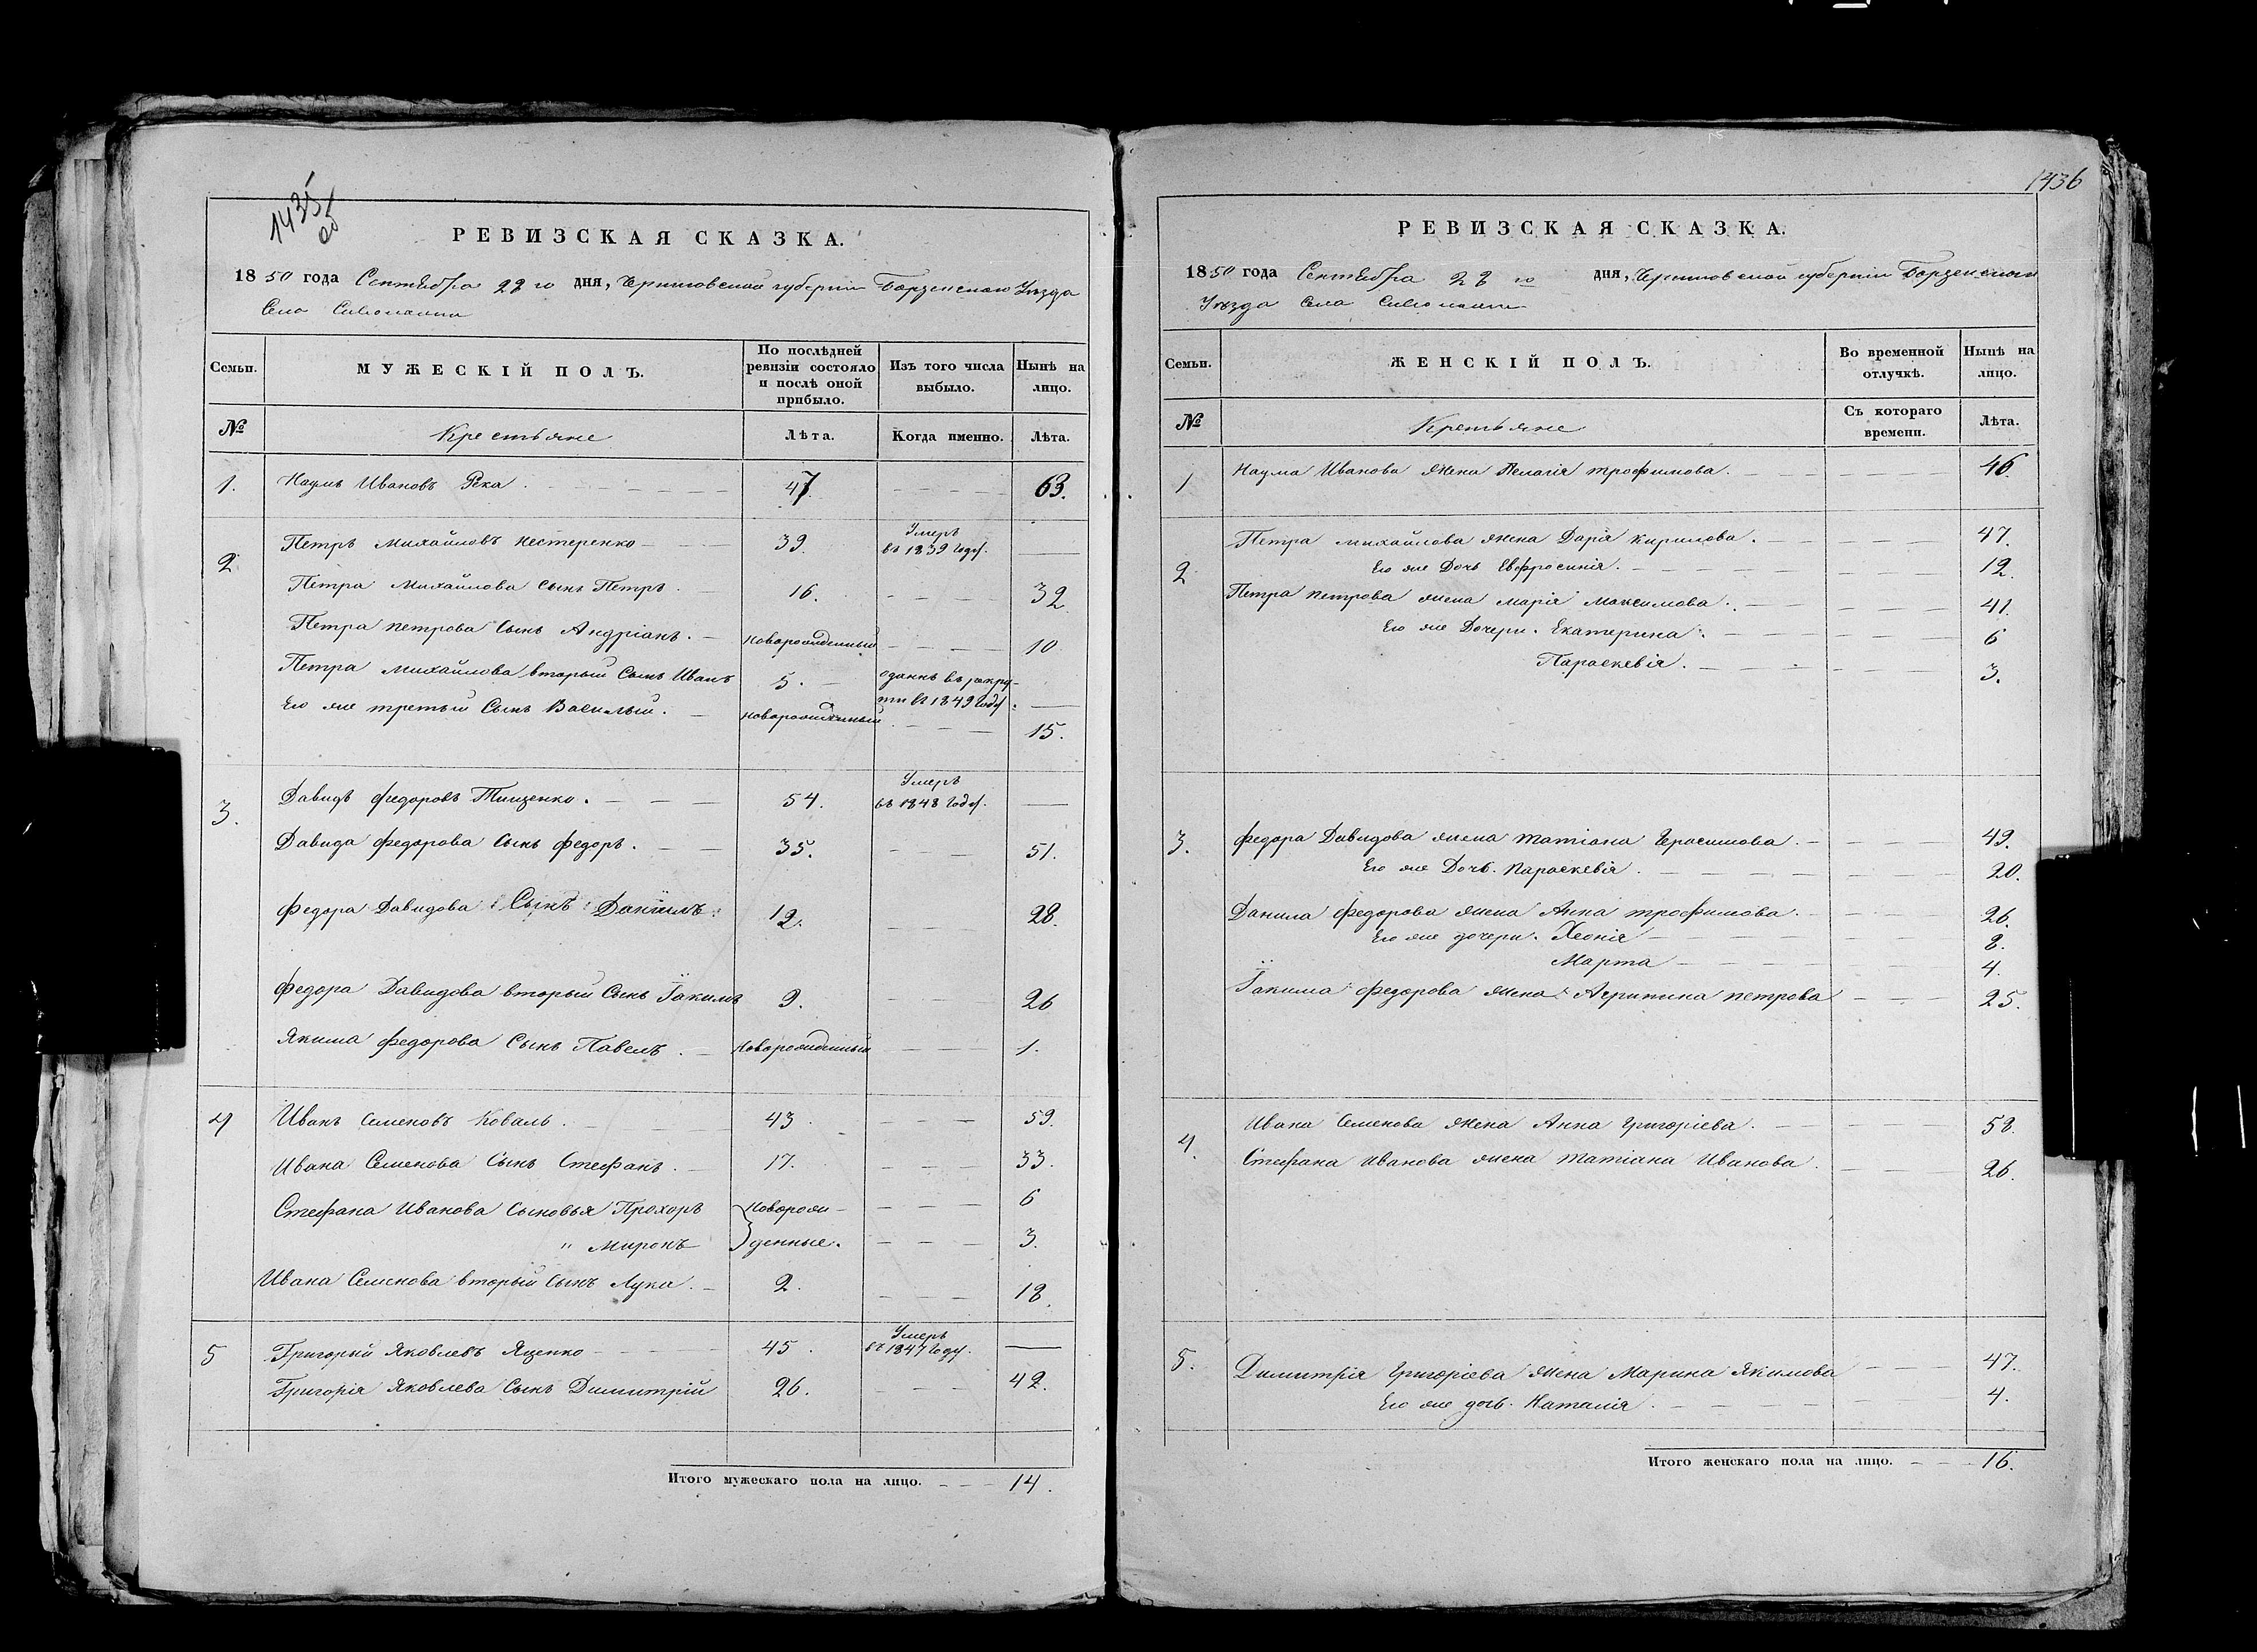 1435
об
РЕВИЗСКАЯ СКАЗКА.
1850 года Сентября 28 го дня, Черниговской губернии Борзенскаго Уѣзда
Села
Семьи. МУЖЕСКІЙ ПОЛЪ. По послѣдней ревизіи состояло и послѣ оной прибыло. Изъ того числа выбыло. Нынѣ на лицо.
№ Крестьяне Лѣта. Когда именно. Лѣта.
1. Наумъ Ивановъ Река. 47. 63.
2 Петръ Михайловъ Нестеренко 39. Умеръ въ 1839 году.
Петра Михайлова Сынъ Петръ. 16. 32
Петра Петрова Сынъ Андріанъ. Новорожденный 10
Петра Михайлова вторый Сынъ Иванъ 5. отданъ въ рекруты въ 1849 году.
Его же третый Сынъ Василый. Новорожденный 15.
3. Давидъ Федоровъ Тищенко. 54. Умеръ въ 1848 году.
Давида Федорова Сынъ Федоръ. 35. 51.
Федора Давидова Сынъ Данiилъ 12. 28.
Федора Давидова вторый Сынъ Іакимъ 9. 26
Якима Федорова Сынъ Павелъ. Новорожденный 1.
4 Иванъ Семеновъ Коваль. 43. 59.
Ивана Семенова Сынъ Стефанъ. 17. 33.
Стефана Иванова Сыновья Прохоръ Новорож- 6
" Миронъ денные. 3.
Ивана Семенова вторый Сынъ Лука. 2. 18.
5 Григорый Яковлевъ Яценко 45. Умеръ въ 1847 году.
Григорія Яковлева Сынъ Димитрій 26. 42.
Итого мужескаго пола на лицо. 14.
1436
РЕВИЗСКАЯ СКАЗКА.
1850 года Сентября 28 го дня, Черниговской губерніи Борзенскаго
Уѣзда Села
Семьи. ЖЕНСКІЙ ПОЛЪ. Во временной отлучкѣ. Нынѣ на лицо.
№ Крестьяне Съ котораго времени. Лѣта.
1 Наума Иванова жена Пелагія Трофимова. 46.
2 Петра Михайлова жена Дарія Кирилова. 47.
Его же Дочь Евфросинія. 12.
Петра Петрова жена Марія Максимова. 41.
Его же Дочери. Екатерина. 6
Параскевія. 3.
3. Федора Давидова жена Татіана Герасимова. 49.
Его же Дочь. Параскевія. 20.
Данила Федорова жена Анна Трофимова. 26.
Его же дочери. Хеонія 8.
Марта 4.
Іакима Федорова жена Агрипина Петрова 25.
4. Ивана Семенова жена Анна Григоріева. 58.
Стефана Иванова жена Татіана Иванова. 26.
5. Димитрія Григоріева жена Марина Якимова 47.
Его же дочь. Наталія. 4.
Итого женскаго пола на лицо. 16.